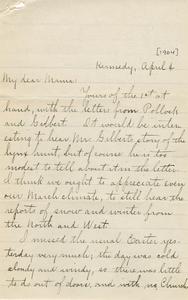 [1904]
Kennedy, April 4
My dear Mama:
Yours of the 1st at
hand, with the letters from Pollock
and Gilbert. It would be inter-
esting to hear Mr. Gilbert's story of the
lynx hunt, but of course he is too
modest to tell about it in the letter.
I think we ought to appreciate even
our March climate, to still hear the
reports of snow and winter from
the North and West.
I missed the usual Easter yes-
terday very much; the day was cold
cloudy and windy, so there was little
to do out of doors, and with no Church